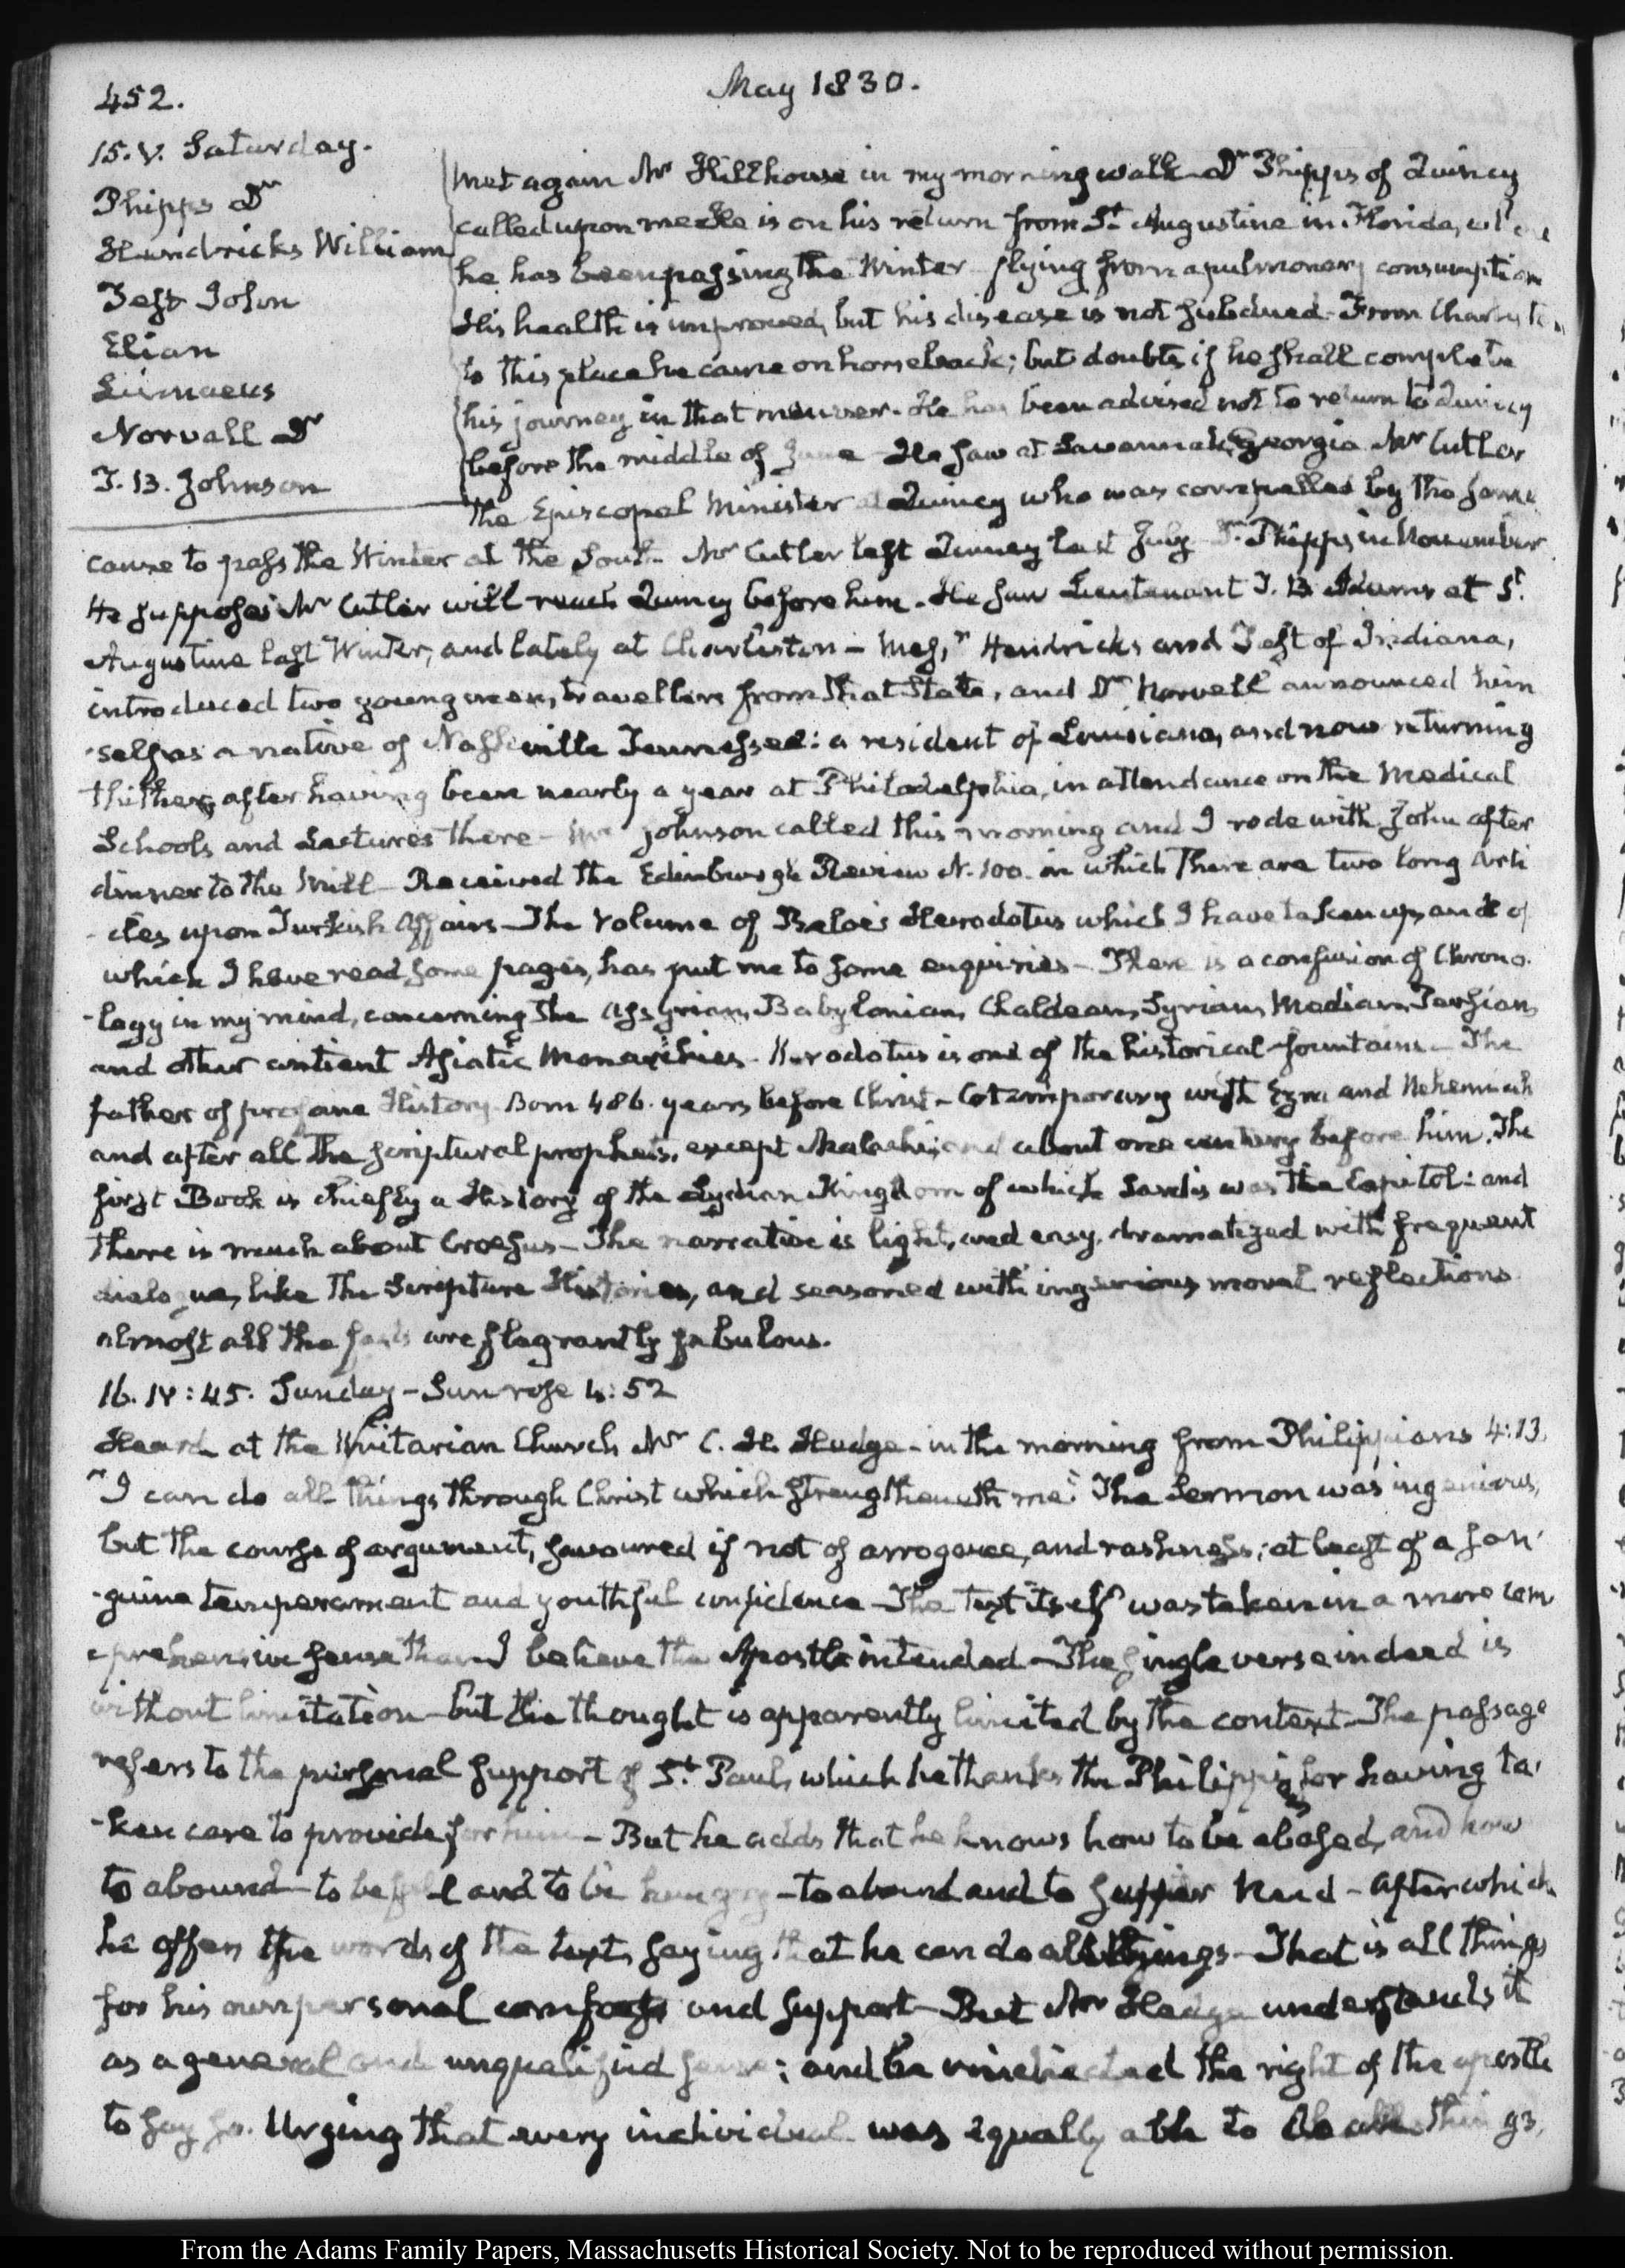 452.
May 1830.
15. V. Saturday.
Phipps Dr
Hendricks William
Test John
Elian
Linnaeus
Norvall Dr
J. B. Johnson
Met again Mr Hillhouse in my morning walk – Dr Phipps of Quincy
called upon me – He is on his return from St Augustine in Florida, where
he has been passing the Winter flying from a pulmonary consumption
His health is improved, but his disease is not subdued – From Charleston
to this place he came on horseback; but doubts if he shall complete
his journey in that manner. He has been advised not to return to Quincy
before the middle of June – He saw at Savannah, Georgia Mr Cutler
the Episcopal Minister at Quincy who was compelled by the same
cause to pass the Winter at the South – Mr Cutler left Quincy last July – Dr Phipps in November
He supposes Mr Cutler will reach Quincy before him – He saw Lieutenant J. B. Adams at St
Augustine last Winter, and lately at Charleston – Messrs Hendricks and Test of Indiana,
introduced two young men, travellers from that State, and Dr Norvell announced him
-self as a native of Nashville Tennessee: a resident of Louisiana, and now returning
thither, after having been nearly a year at Philadelphia, in attendance on the Medical
Schools and Lectures there – Mr Johnson called this morning and I rode with John after
dinner to the Mill – Received the Edinburgh Review N. 100. in which there are two long arti
-cles upon Turkish Affairs – The Volume of Beloe's Herodotus which I have taken up, and of
which I have read some pages, has put me to some enquiries – There is a confusion of Chrono-
-logy in my mind, concerning the Assyrian, Babylonian, Chaldean, Syrian, Median, Persian,
and other antient Asiatic Monarchies – Herodotus is one of the historical fountains – The
father of profane History. Born 486. years before Christ – Cotemporary with Ezra and Nehemiah
and after all the scriptural prophets, except Malachi; and about one century before him. The
first Book is chiefly a History of the Lydian Kingdom of which Sardis was the Capitol: and
there is much about Croesus – The narrative is light, and easy, dramatized with frequent
dialogue, like the Scripture Histories, and seasoned with ingenious moral reflections
almost all the facts are flagrantly fabulous.
16. IV: 45. Sunday – Sun rose 4:52
Heard at the Unitarian Church Mr C. H. Hedge – in the morning from Philippians 4:13
"I can do all things through Christ which strengtheneth me." The Sermon was ingenious,
but the course of argument, savoured if not of arrogance, and rashness; at least of a san-
-guine temperament and youthful confidence – The text itself was taken in a more com
-prehensive sense than I believe the Apostle intended – The single verse indeed is
without limitation – but the thought is apparently limited by the context – The passage
refers to the personal support of St. Paul, which he thanks the Philippians for having ta-
-ken care to provide for him – But he adds that he knows how to be abased, and how
to abound – to be full and to be hungry – to abound and to suffer need – after which
he offers the words of the text, saying that he can do all things – That is all things
for his own personal comfort and support – But Mr Hedge understands it
as a general and unqualified sense; and he vindicated the right of the apostle
to say so. Urging that every individual was equally able to do all things,
From the Adams Family Papers, Massachusetts Historical Society. Not to be reproduced without permission.